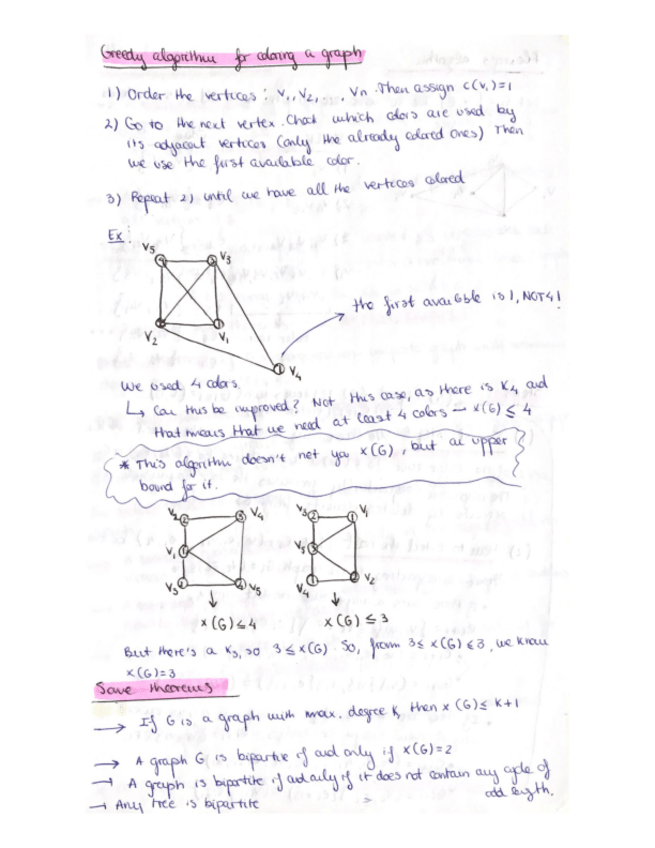 Greedy algorithm for coloring a graph
1) Order the vertices : V₁, V₂, ..., Vn. Then assign c(v₁)=1
2) Go to the next vertex. Check which colors are used by
its adjacent vertices (only the already colored ones) Then
we use the first available color.
3) Repeat 2) until we have all the vertices colored
Ex:
V5 V3
V2 V1
1 V4
the first available is 1, NOT 4!
We used 4 colors.
↳ Can this be improved? Not this case, as there is K4 and
that means that we need at least 4 colors — x(G) ≤ 4
* This algorithm doesn't net ya x(G), but an upper
bound for it.
V2 2 3 V4 V3 2 1 V1
V1 1 V5 3
V3 4 V5 V4 1 2 V2
x(G) ≤ 4 x(G) ≤ 3
But there's a K3, so 3 ≤ x(G). So, from 3 ≤ x(G) ≤ 3, we know
x(G)=3
Some theorems
→ If G is a graph with max. degree K, then x(G) ≤ K+1
→ A graph G is bipartite if and only if x(G)=2
→ A graph is bipartite if and only if it does not contain any cycle of
odd length.
→ Any tree is bipartite